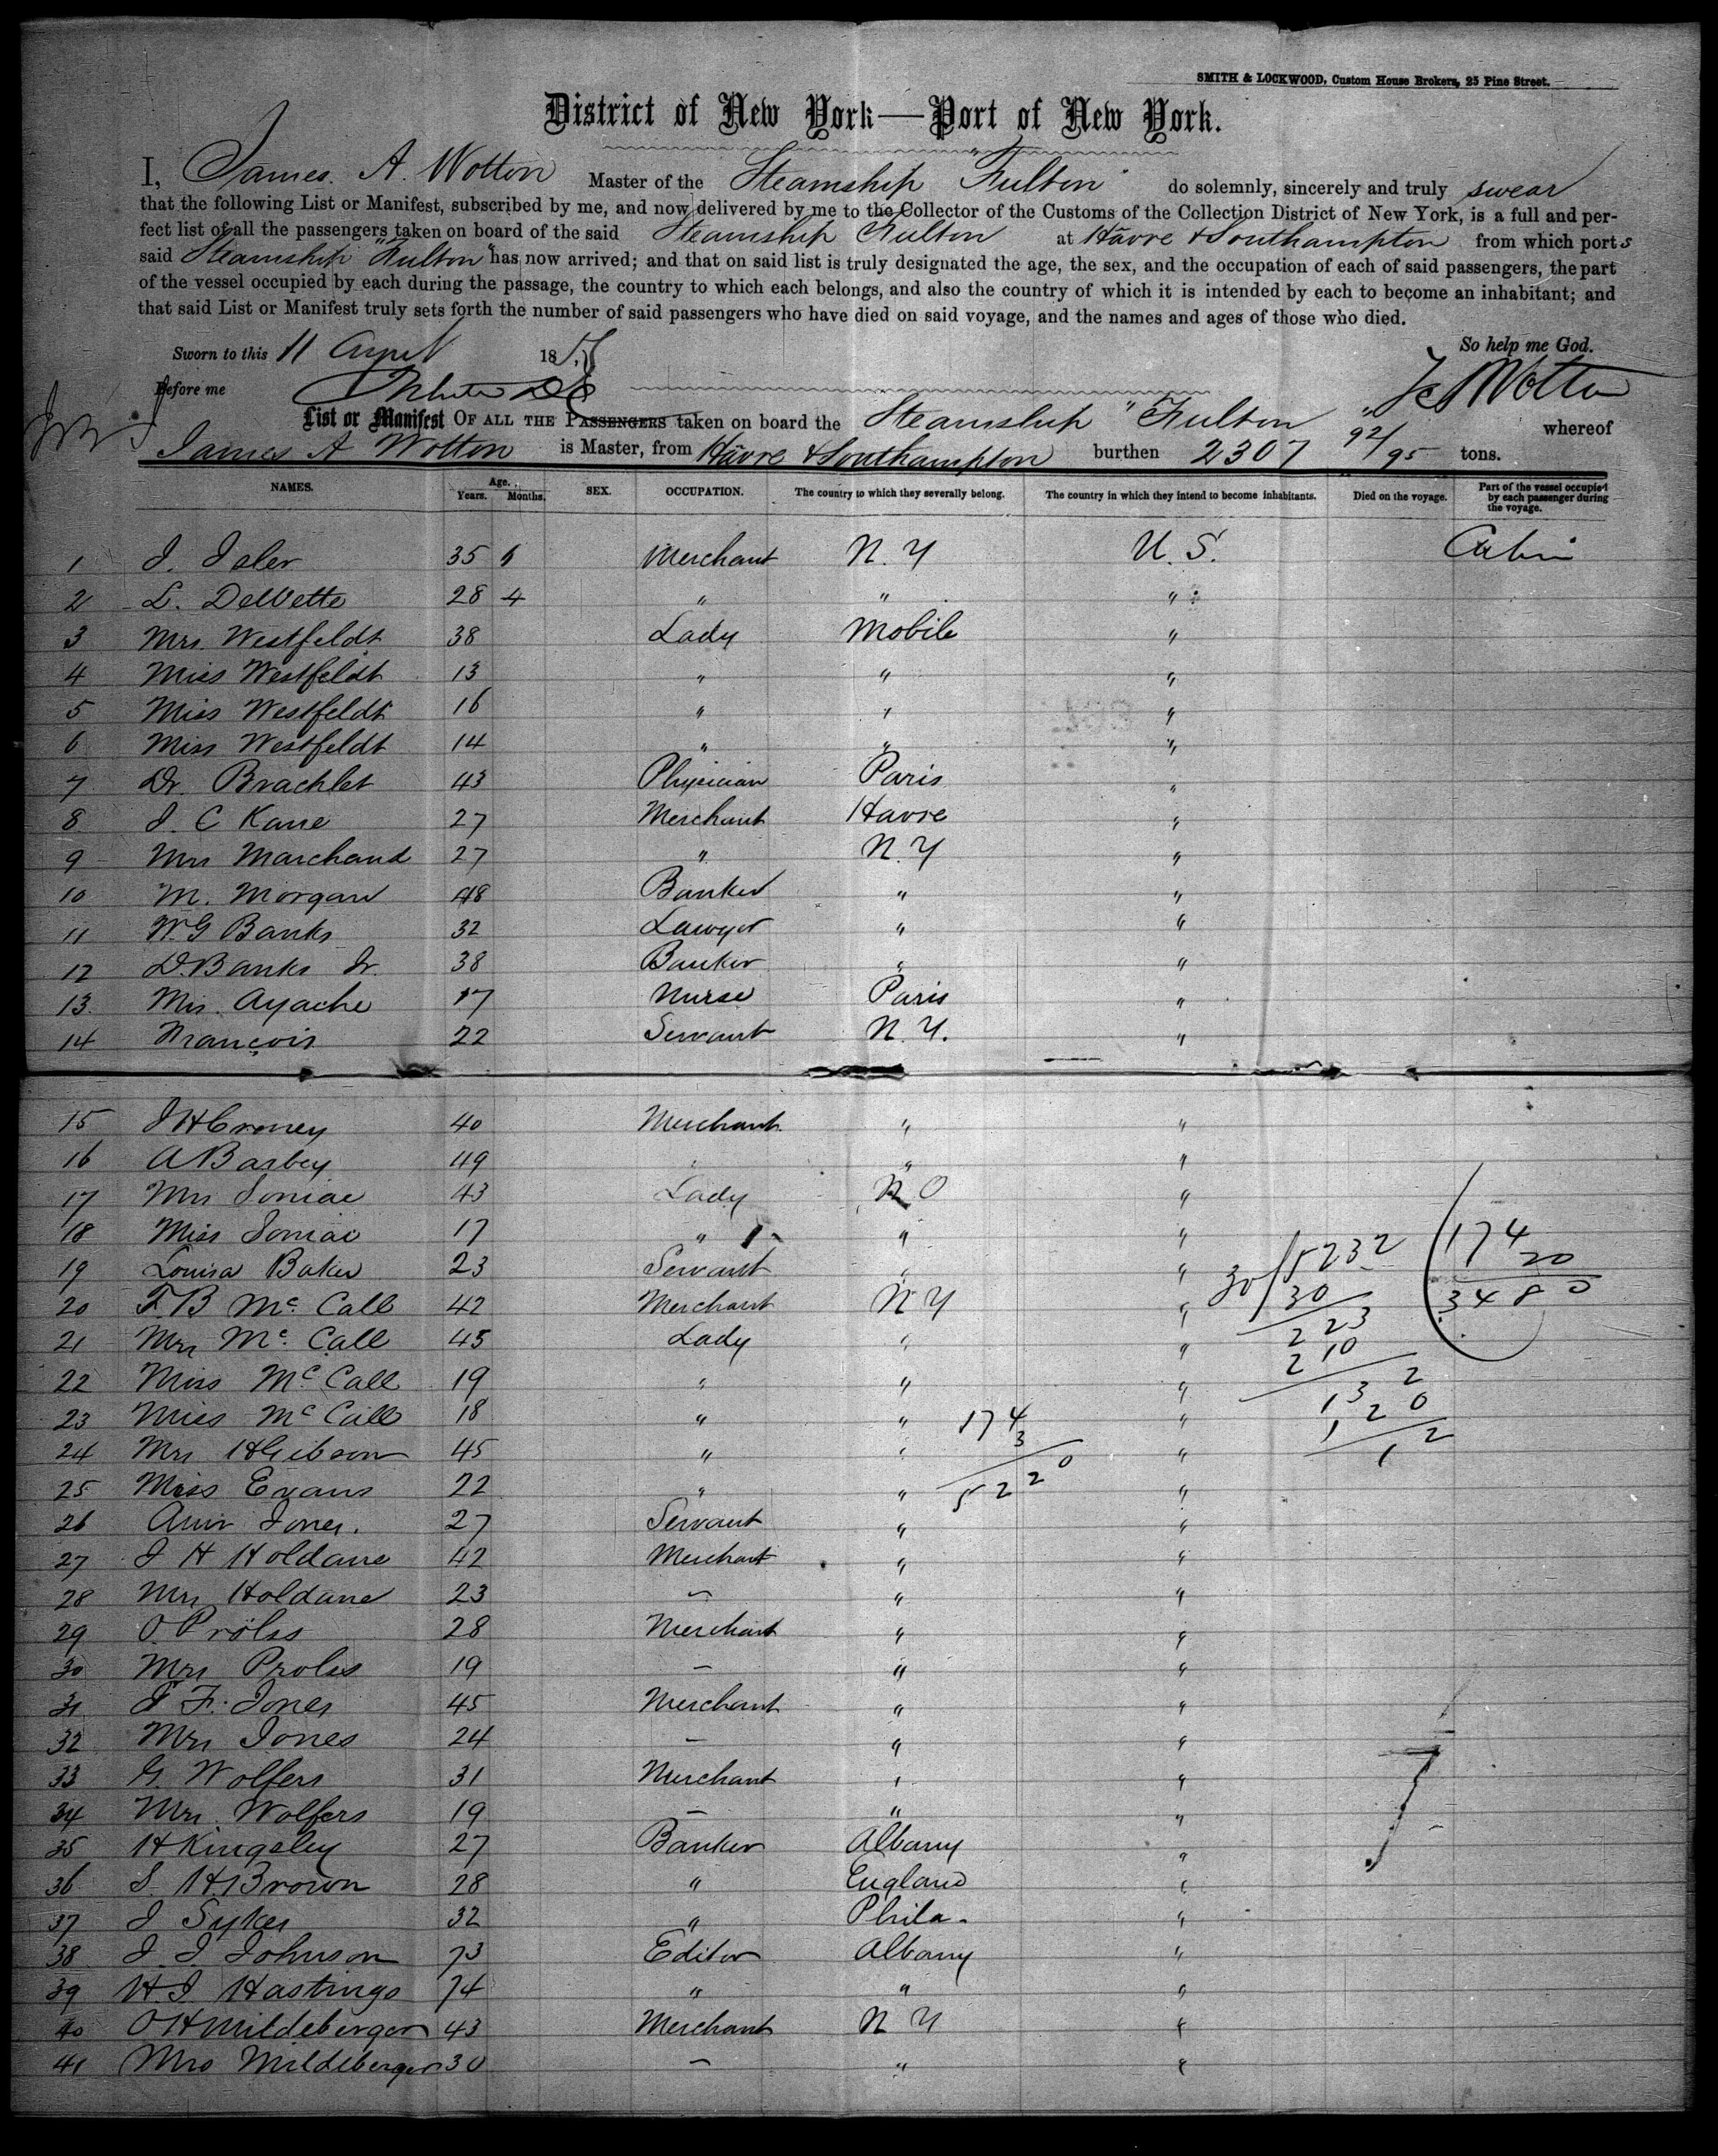 SMITH & LOCKWOOD, Custom House Brokers, 25 Pine Street.
District of New York—Port of New York.
I, James A. Wotton Master of the Steamship "Fulton" do solemnly, sincerely and truly swear
that the following List or Manifest, subscribed by me, and now delivered by me to the Collector of the Customs of the Collection District of New York, is a full and per-
fect list of all the passengers taken on board of the said Steamship Fulton at Havre & Southampton from which ports
said Steamship "Fulton" has now arrived; and that on said list is truly designated the age, the sex, and the occupation of each of said passengers, the part
of the vessel occupied by each during the passage, the country to which each belongs, and also the country of which it is intended by each to become an inhabitant; and
that said List or Manifest truly sets forth the number of said passengers who have died on said voyage, and the names and ages of those who died.
Sworn to this 11 April 185 So help me God.
Before me Wotton
List or Manifest OF ALL THE PASSENGERS taken on board the Steamship "Fulton" whereof
James A Wotton is Master, from Havre & Southampton burthen 2307 92/95 tons.
NAMES. Age. Years. Months. SEX. OCCUPATION. The country to which they severally belong. The country in which they intend to become inhabitants. Died on the voyage. Part of the vessel occupied by each passenger during the voyage.
1 J. Isler 35 6 Merchant N. Y U. S. Cabin
2 L. DeWette 28 4 " " "
3 Mrs. Westfeldt 38 Lady Mobile "
4 Miss Westfeldt 13 " " "
5 Miss Westfeldt 16 " " "
6 Miss Westfeldt 14 " " "
7 Dr. Brachlet 43 Physician Paris "
8 J. C Kane 27 Merchant Havre "
9 Mrs Marchand 27 " N. Y "
10 M. Morgan 48 Banker " "
11 W.G Banks 32 Lawyer " "
12 D. Banks Jr. 38 Banker " "
13 Mrs. Ayache 17 Nurse Paris "
14 François 22 Servant N. Y. "
15 J H Croney 40 Merchant " "
16 A Barbey 49 " " "
17 Mrs Soniac 43 Lady N O "
18 Miss Soniac 17 " " "
19 Louisa Baker 23 Servant " "
20 T. B Mc Call 42 Merchant N Y "
21 Mrs Mc Call 45 Lady " "
22 Miss Mc Call 19 " " "
23 Miss Mc Call 18 " " "
24 Mrs H Gibson 45 " " "
25 Miss Evans 22 " " "
26 Ann Jones. 27 Servant " "
27 J H Holdane 42 Merchant " "
28 Mrs Holdane 23 – " "
29 O. Prölss 28 Merchant " "
30 Mrs Prolss 19 – " "
31 J F. Jones 45 Merchant " "
32 Mrs Jones 24 – " "
33 G. Wolfers 31 Merchant " "
34 Mrs. Wolfers 19 – " "
35 H Kingsley 27 Banker Albany "
36 S. H. Brown 28 " England "
37 J Sykes 32 " Phila. "
38 J. J. Johnson 73 Editor Albany "
39 H. J Hastings 74 " " "
40 O H Mildeberger 43 Merchant N Y "
41 Mrs Mildeberger 30 – " "
174
3
5220
30/5232
30
223
210
132
120
12
174
20
3480